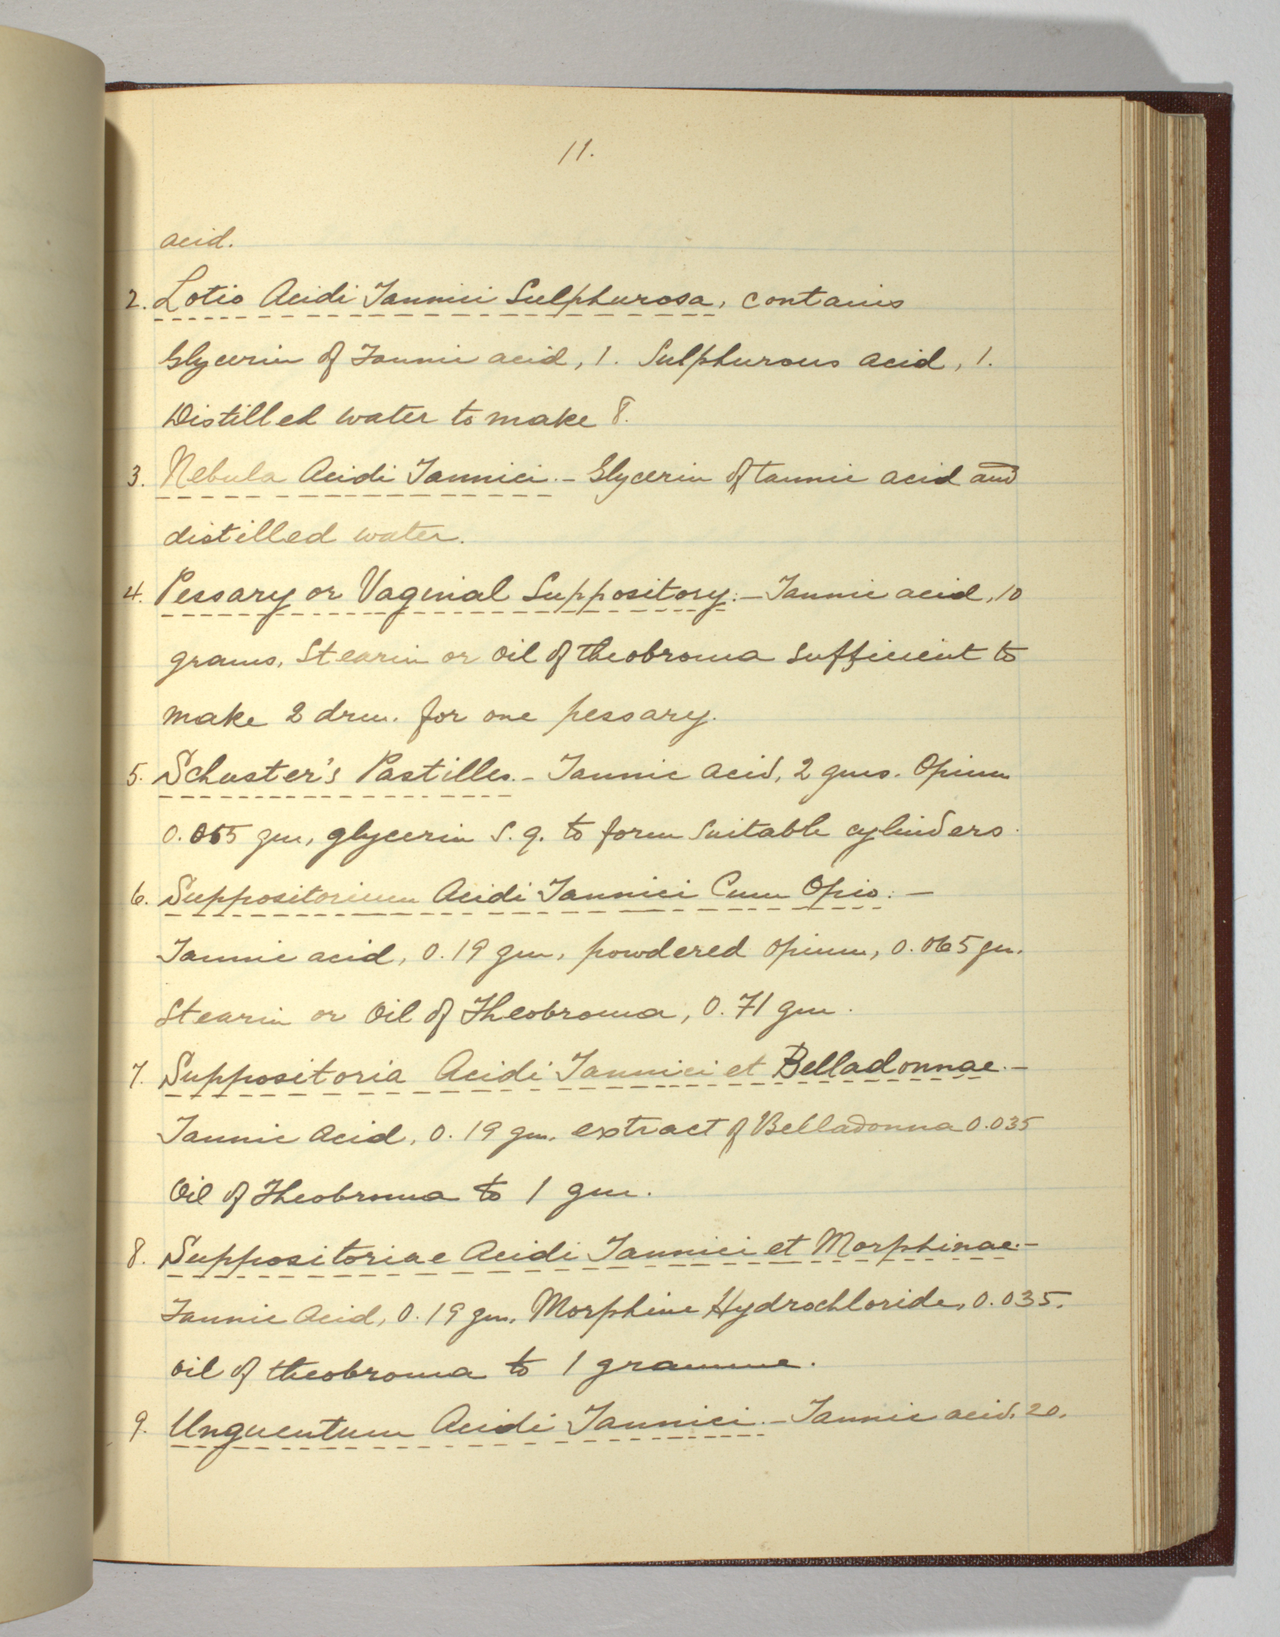 11.
acid.
2. Lotio Acidi Tannici Sulphurosa, contains
Glycerin of Tannic acid, 1. Sulphurous acid, 1.
Distilled water to make 8.
3. Nebula Acidi Tannici.- Glycerin of tannic acid and
distilled water.
4. Pessary or Vaginal Suppository.- Tannic acid, 10
grams, Stearin or oil of theobroma sufficient to
make 2 drm. for one pessary.
5. Schuster's Pastilles.- Tannic acid, 2 gms. Opium
0.065 gm, glycerin S.q. to form suitable cylinders.
6. Suppositorium Acidi Tannici Cum Opio.-
Tannic acid, 0.19 gm, powdered opium, 0.065 gm.
Stearin or Oil of Theobroma, 0.71 gm.
7. Suppositoria Acidi Tannici et Belladonnae.-
Tannic Acid, 0.19 gm, extract of Belladonna 0.035
Oil of Theobroma to 1 gm.
8. Suppositoriae Acidi Tannici et Morphinae.-
Tannic Acid, 0.19 gm, Morphine Hydrochloride, 0.035.
Oil of theobroma to 1 gramme.
9. Unguentum Acidi Tannici.- Tannic acid, 20.